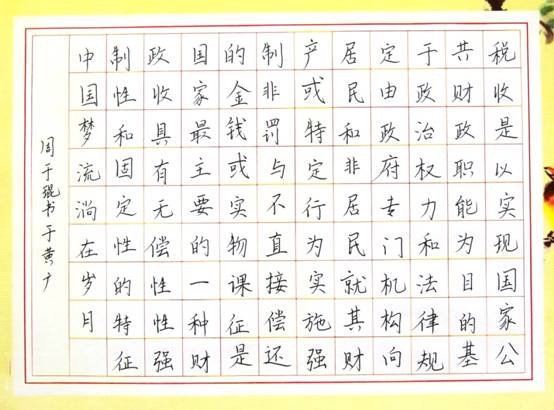 税收是以实现国家公
共财政职能为目的基
于政治权力和法律规
定由政府专门机构向
居民和非居民就其财
产或特定行为实施强
制非罚与不直接偿还
的金钱或实物课征是
国家最主要的一种财
政收具有无偿性性强
制性和固定性的特征
中国梦流淌在岁月
周于琨书于黄广